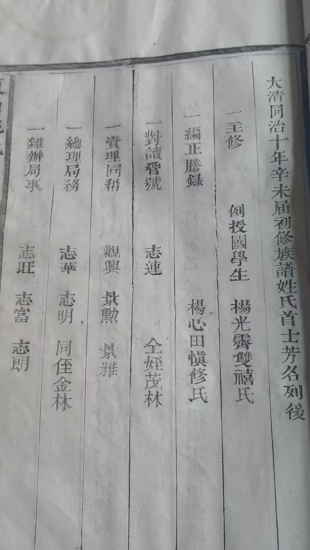 大清同治十年辛未届初修族譜姓氏首士芳名列後
一主修 例授國學生 楊光霽雙禧氏
一編正謄錄 楊心田愼修氏
一對讀 志連 仝姪茂林
一賚理同 觀興 景勲 景雅
一總理局務 志華 志明 同侄金林
一雜辦局事 志旺 志富 志明